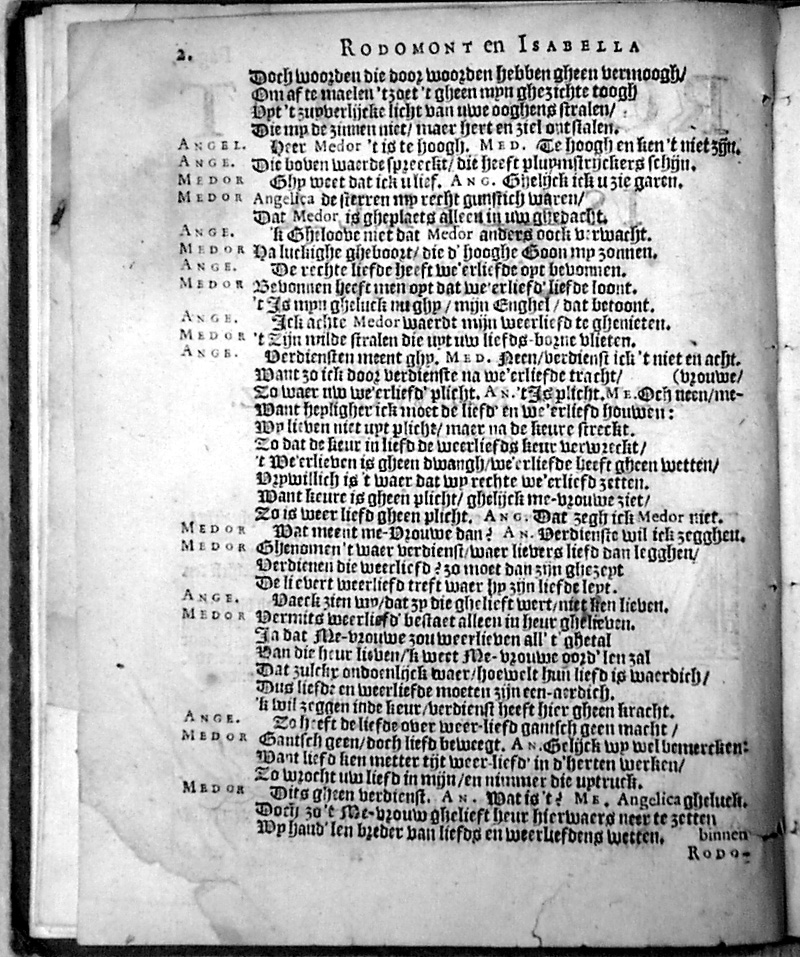 2. RODOMONT en ISABELLA
Doch woorden die door woorden hebben gheen vermoogh/
Om af te maelen 't zoet 't gheen myn ghezichte toogh
Uyt 't zuyverlijcke licht van uwe ooghens stralen/
Die my de zinnen niet/ maer hert en ziel ontstalen.
ANGEL. Heer Medor 't is te hoogh. MED. Te hoogh en ken 't niet zijn.
ANGE. Die boven waerde spreeckt/ die heeft pluymstrijckers schijn.
MEDOR Ghy weet dat ick u lief. ANG. Ghelijck ick u zie garen.
MEDOR Angelica de sterren my recht gunstich waren/
Dat Medor is gheplaets alleen in uw ghedacht.
ANGE. 'k Gheloove niet dat Medor anders oock verwacht.
MEDOR Ha luckighe gheboort/ die d' hooghe Goon my zonnen.
ANGE. De rechte liefde heeft we'erliefde oyt bevonnen.
MEDOR Bevonnen heeft men oyt dat we'erliefd' liefde loont.
't Is mijn gheluck nu ghy/ mijn Enghel/ dat betoont.
ANGE. Ick achte Medor waerdt mijn weerliefd te ghenieten.
MEDOR 't Zijn milde stralen die uyt uw liefds-borne vlieten.
ANGE. Verdiensten meent ghy. MED. Neen/ verdienst ick 't niet en acht.
Want zo ick door verdienste na we'erliefde tracht/ (vrouwe/
Zo waer uw we'erliefd' plicht. AN. 't Is plicht. ME. Och neen/ me-
Want heyligher ick moet de liefd' en we'erliefd houwen:
Wy lieven niet uyt plicht/ maer na de keure streckt.
Zo dat de keur in liefd de weerliefds keur verwreckt/
't We'erlieven is gheen dwangh/ we'erliefde heeft gheen wetten/
Vrywillich is 't waer dat wy rechte we'erliefd zetten.
Want keure is gheen plicht/ ghelijck me-vrouwe ziet/
Zo is weer liefd gheen plicht. ANG. Dat zegh ick Medor niet.
MEDOR Wat meent me-Vrouwe dan? AN. Verdienste wil ick zegghen.
MEDOR Ghenomen 't waer verdienst/ waer lievers liefd dan legghen/
Verdienen die weerliefd? zo moet dan zijn ghezeyt
De lievert weerliefd treft waer hy zijn liefde leyt.
ANGE. Vaeck zien wy/ dat zy die ghelieft wert/ niet ken lieven.
MEDOR Vermits weerliefd' bestaet alleen in heur ghelieven.
Ja dat Me-vrouwe zou weerlieven all' 't ghetal
Van die heur lieven/ 'k weet Me-vrouwe oord'len zal
Dat zulckx ondoenlijck waer/ hoewelt hun liefd is waerdich/
Dus liefde en weerliefde moeten zijn een-aerdich.
'k wil zeggen inde keur/ verdienst heeft hier gheen kracht.
ANGE. Zo heeft de liefde over weer-liefd gantsch geen macht/
MEDOR Gantsch geen/ doch liefd beweegt. AN. Gelijck wy wel bemercken:
Want liefd ken metter tijt weer-liefd' in d'herten werken/
Zo wrocht uw liefd in mijn/ en nimmer die uytruck.
MEDOR Dits gheen verdienst. AN. Wat is 't? ME. Angelica gheluck.
Doch zo 't Me-vrouw ghelieft heur hierwaers neer te zetten
Wy hand'len breder van liefds en weerliefdens wetten. binnen
RODO-